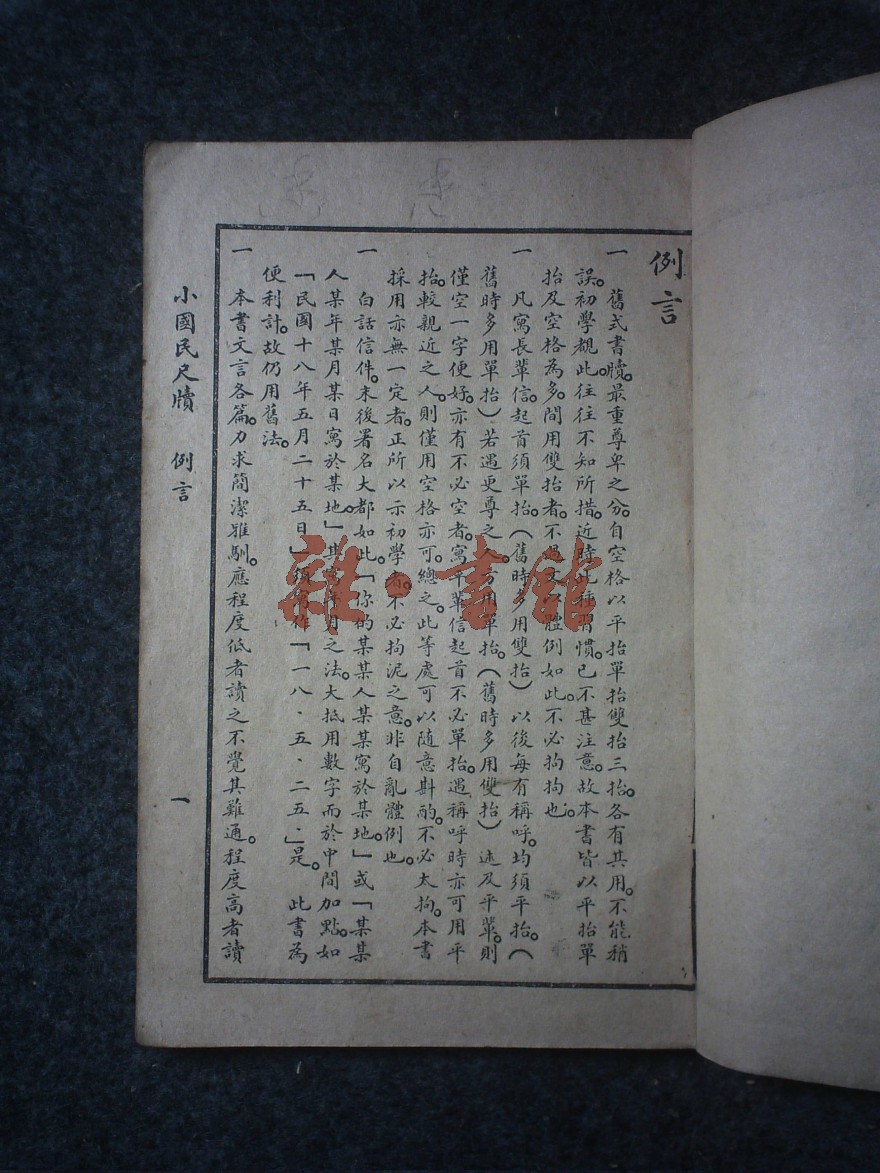 例言
一　舊式書牘。最重尊卑之分。自空格以平抬單抬雙抬三抬。各有其用。不能稍
誤。初學覩此。往往不知所措。近時此種習慣。已不甚注意。故本書皆以平抬單
抬及空格為多。間用雙抬者。不過又以體例如此。不必拘拘也。
一　凡寫長輩信。起首須單抬。（舊時多用雙抬）以後每有稱呼。均須平抬。（
舊時多用單抬）若遇更尊之人。方用單抬。（舊時多用雙抬）述及平輩。則
僅空一字便好。亦有不必空者。寫平輩信起首不必單抬。遇稱呼時亦可用平
抬。較親近之人。則僅用空格亦可。總之。此等處可以隨意斟酌。不必太拘。本書
採用亦無一定者。正所以示初學者。不必拘泥之意。非自亂體例也。
一　白話信件。末後署名大都如此。「你的某某人某某寫於某地。」或「某某
人某年某月某日寫於某地。」其寫年月之法。大抵用數字而於中間加點。如
「民國十八年五月二十五日」須寫作「一八．五．二五．」是。此書為
便利計。故仍用舊法。
一　本書文言各篇。力求簡潔雅馴。應程度低者讀之不覺其難通。程度高者讀
小國民尺牘　例言　一
雜·書館